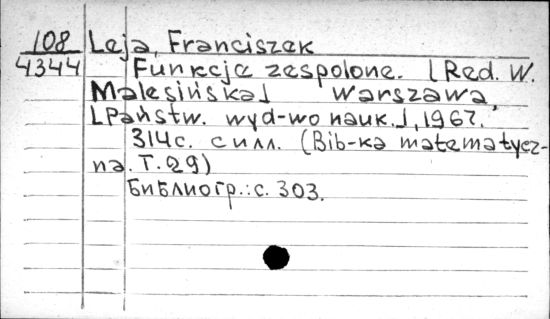 108 Leja, Franciszek
4344 Funkcje zespolone. [Red. W.
Malesińska] Warszawa,
[Państw. wyd-wo nauk.], 1967.
314с. с илл. (Bib-ka matematycz-
na. T. 29)
Библиогр.: с. 303.